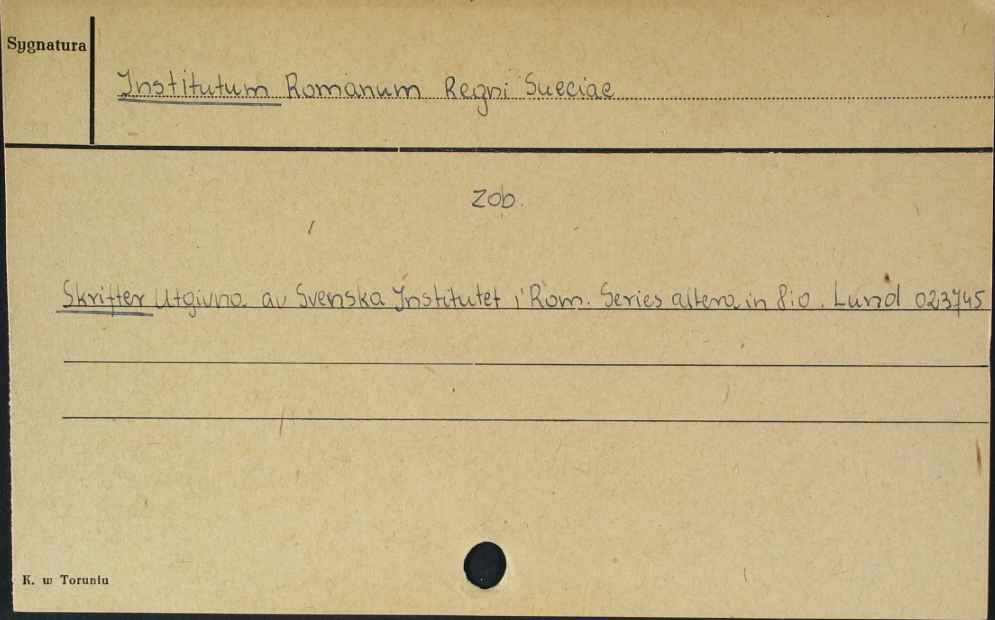 Sygnatura
Institutum Romanum Regni Sueciae
zob.
Skrifter Utgivna av Svenska Institutet i Rom. Series altera in 8:o. Lund 023745
K. w Toruniu